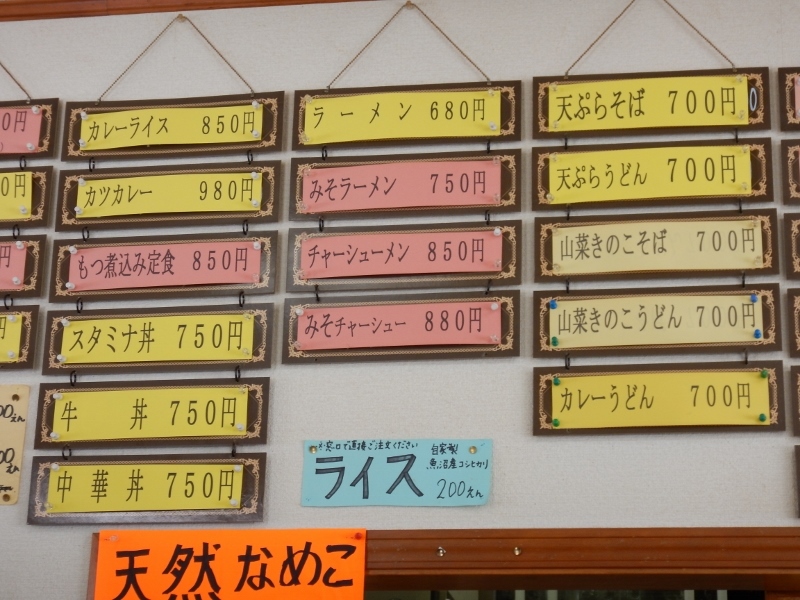 カレーライス 850円
カツカレー 980円
もつ煮込み定食 850円
スタミナ丼 750円
牛 丼 750円
中華丼 750円
ラーメン 680円
みそラーメン 750円
チャーシューメン 850円
みそチャーシュー 880円
※窓口で直接ご注文ください
ライス
自家製
魚沼産コシヒカリ
200えん
天ぷらそば 700円
天ぷらうどん 700円
山菜きのこそば 700円
山菜きのこうどん 700円
カレーうどん 700円
天然なめこ